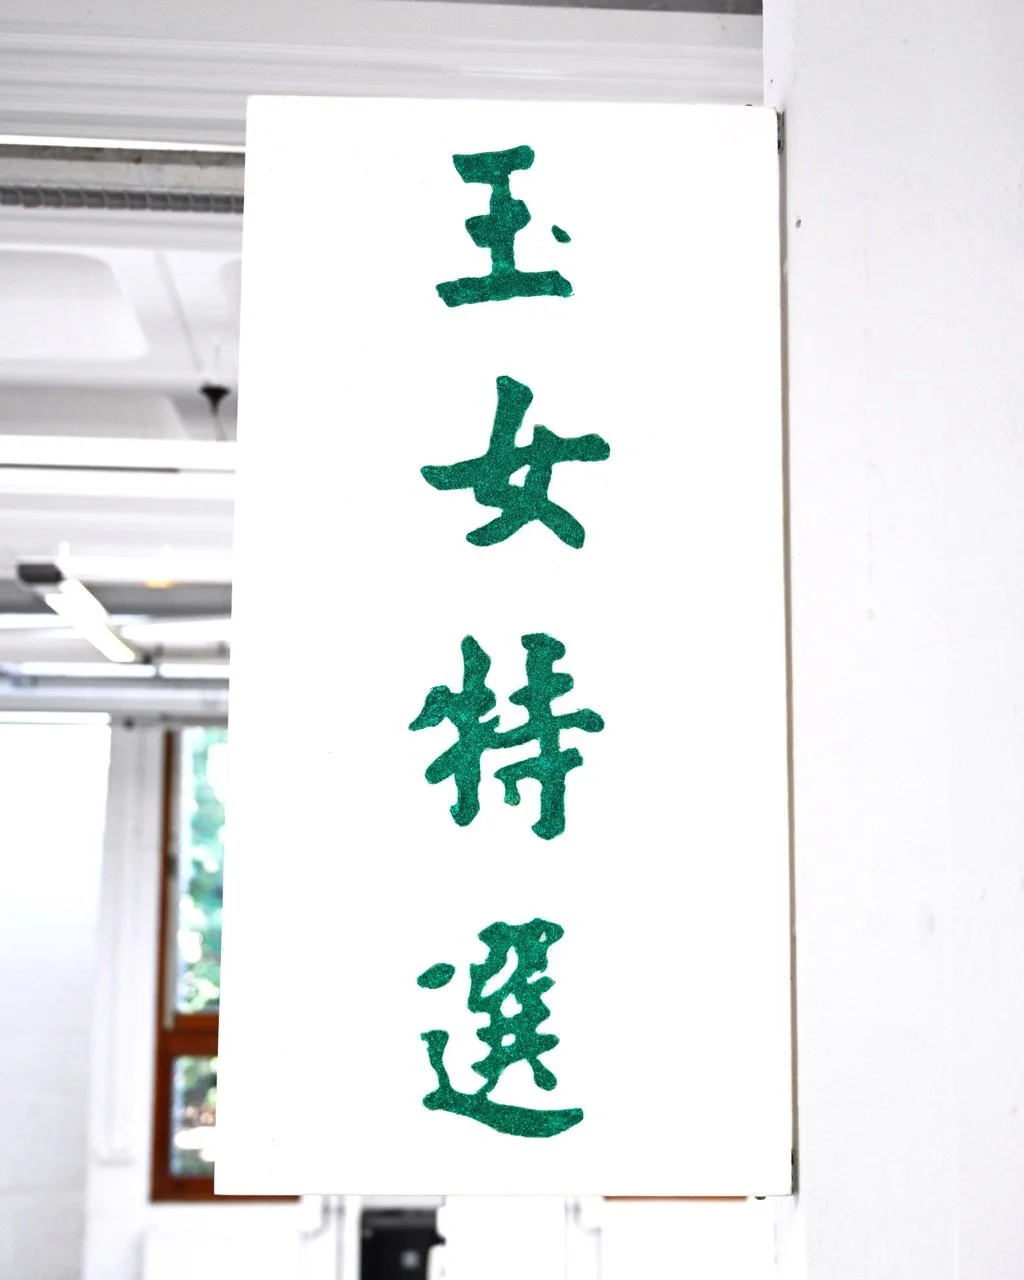 玉女特選